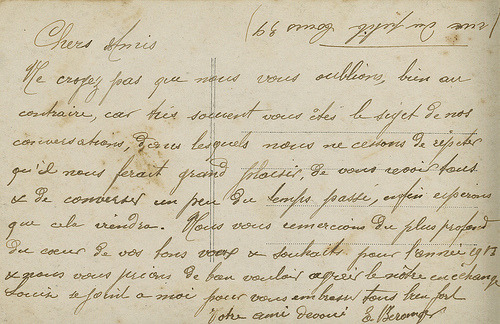 Chers Amis
Ne croyez pas que nous vous oublions, bien au
contraire, car très souvent vous êtes le sujet de nos
conversations, dans lesquels nous ne cessons de répéter
qu'il nous ferait grand plaisir, de vous revoir tous
& de converser un peu du temps passé, enfin espérons
que cela viendra. Nous vous remercions du plus profond
du cœur de vos bons vœux & souhaits pour l'année 1913
& nous vous prions de bien vouloir agréer le notre en échange
Louise se joint a moi pour vous embrasser tous bien fort
Votre ami dévoué E Beranger